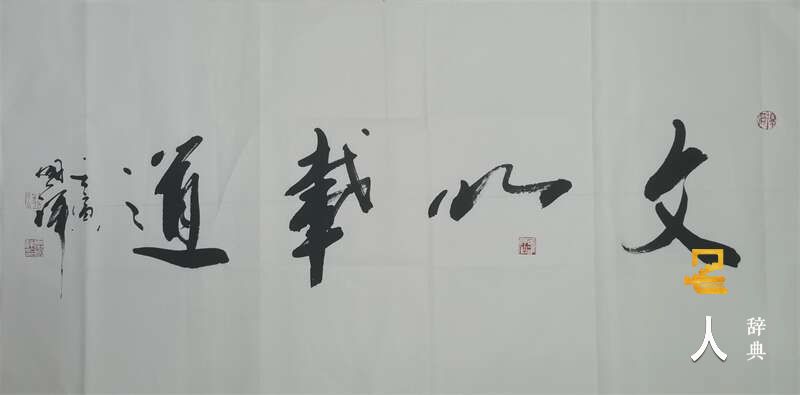 文以载道
名人
辞典